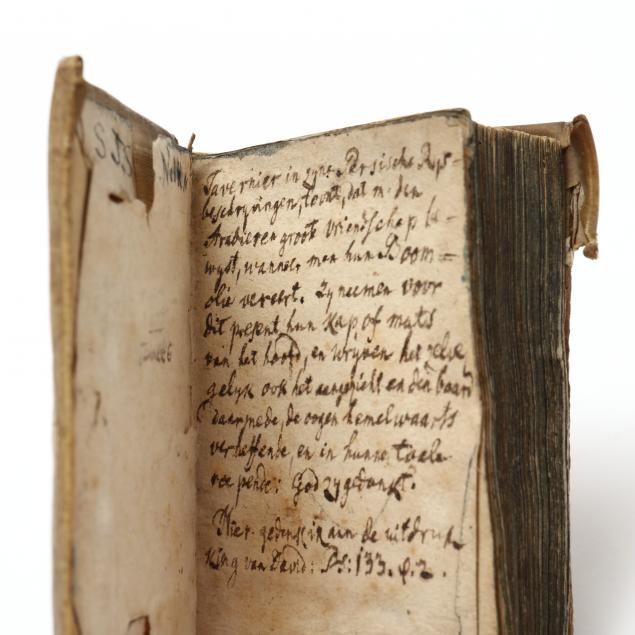 SJS
Tavernier in zyne Persische Rys=
beschryvingen, toont, dat m den
Arabieren groot vriendschap be=
wyst, wanneer men hun Boom=
olie vereert. Zy neemen voor
dit present hun kap of muts
van het hoofd, en wryven het zelve
gelyk ook het aangezicht en den baard
daarmede, de oogen hemelwaarts
verheffende, en in hunne taale
roepende: God zy gedankt.
Hier gedenk ik aan de uitdruk
king van David: Ps: 133. v. 2.